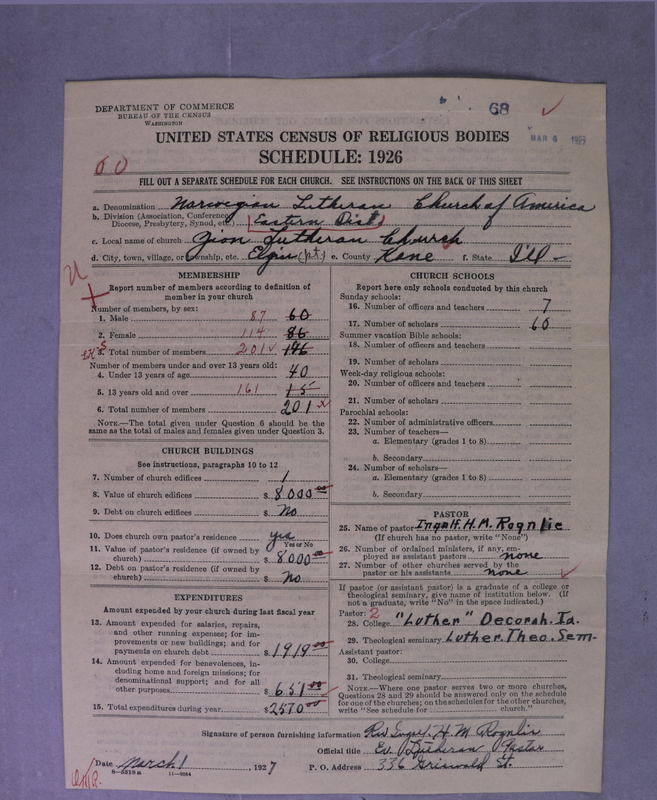 68
MAR 4
DEPARTMENT OF COMMERCE
BUREAU OF THE CENSUS
WASHINGTON
UNITED STATES CENSUS OF RELIGIOUS BODIES
SCHEDULE: 1926
FILL OUT A SEPARATE SCHEDULE FOR EACH CHURCH. SEE INSTRUCTIONS ON THE BACK OF THIS SHEET
a. Denomination Norwegian Lutheran Church of America
b. Division (Association, Conference, Diocese, Presbytery, Synod, etc.) Eastern Dist.
c. Local name of church Zion Lutheran Church
d. City, town, village, or township, etc. Elgin (pt.) e. County Kane f. State Ill –
MEMBERSHIP
Report number of members according to definition of
member in your church
Number of members, by sex:
1. Male 87 60
2. Female 114 86
3. Total number of members 201 146
Number of members under and over 13 years old:
4. Under 13 years of age 40
5. 13 years old and over 161 15
6. Total number of members 201 x
NOTE.—The total given under Question 6 should be the
same as the total of males and females given under Question 3.
CHURCH BUILDINGS
See instructions, paragraphs 10 to 12
7. Number of church edifices 1
8. Value of church edifices $ 8000 00
9. Debt on church edifices $ No
10. Does church own pastor's residence? yes
Yes or No
11. Value of pastor's residence (if owned by
church) $ 8000 00
12. Debt on pastor's residence (if owned by
church) $ No
EXPENDITURES
Amount expended by your church during last fiscal year
13. Amount expended for salaries, repairs,
and other running expenses; for im-
provements or new buildings; and for
payments on church debt $ 1919 00
14. Amount expended for benevolences, in-
cluding home and foreign missions; for
denominational support; and for all
other purposes $ 651 00
15. Total expenditures during year $ 2570 00
CHURCH SCHOOLS
Report here only schools conducted by this church
Sunday schools:
16. Number of officers and teachers 7
17. Number of scholars 60
Summer vacation Bible schools:
18. Number of officers and teachers
19. Number of scholars
Week-day religious schools:
20. Number of officers and teachers
21. Number of scholars
Parochial schools:
22. Number of administrative officers
23. Number of teachers—
a. Elementary (grades 1 to 8)
b. Secondary
24. Number of scholars—
a. Elementary (grades 1 to 8)
b. Secondary
PASTOR
25. Name of pastor Ingolf. H. M. Rognlie
(If church has no pastor, write "None")
26. Number of ordained ministers, if any, em-
ployed as assistant pastors none
27. Number of other churches served by the
pastor or his assistants none
If pastor (or assistant pastor) is a graduate of a college or
theological seminary, give name of institution below. (If
not a graduate, write "No" in the space indicated.)
Pastor: 2
28. College "Luther" Decorah. Ia.
29. Theological seminary Luther. Theo. Sem.
Assistant pastor:
30. College
31. Theological seminary
NOTE.—Where one pastor serves two or more churches,
Questions 28 and 29 should be answered only on the schedule
for one of the churches; on the schedules for the other churches,
write "See schedule for church."
Signature of person furnishing information Rev Ingolf. H. M. Rognlie
Official title Ev. Lutheran Pastor
Date March 1, 1927 P. O. Address 336 Griswold St.
8—5319 a 11—9264